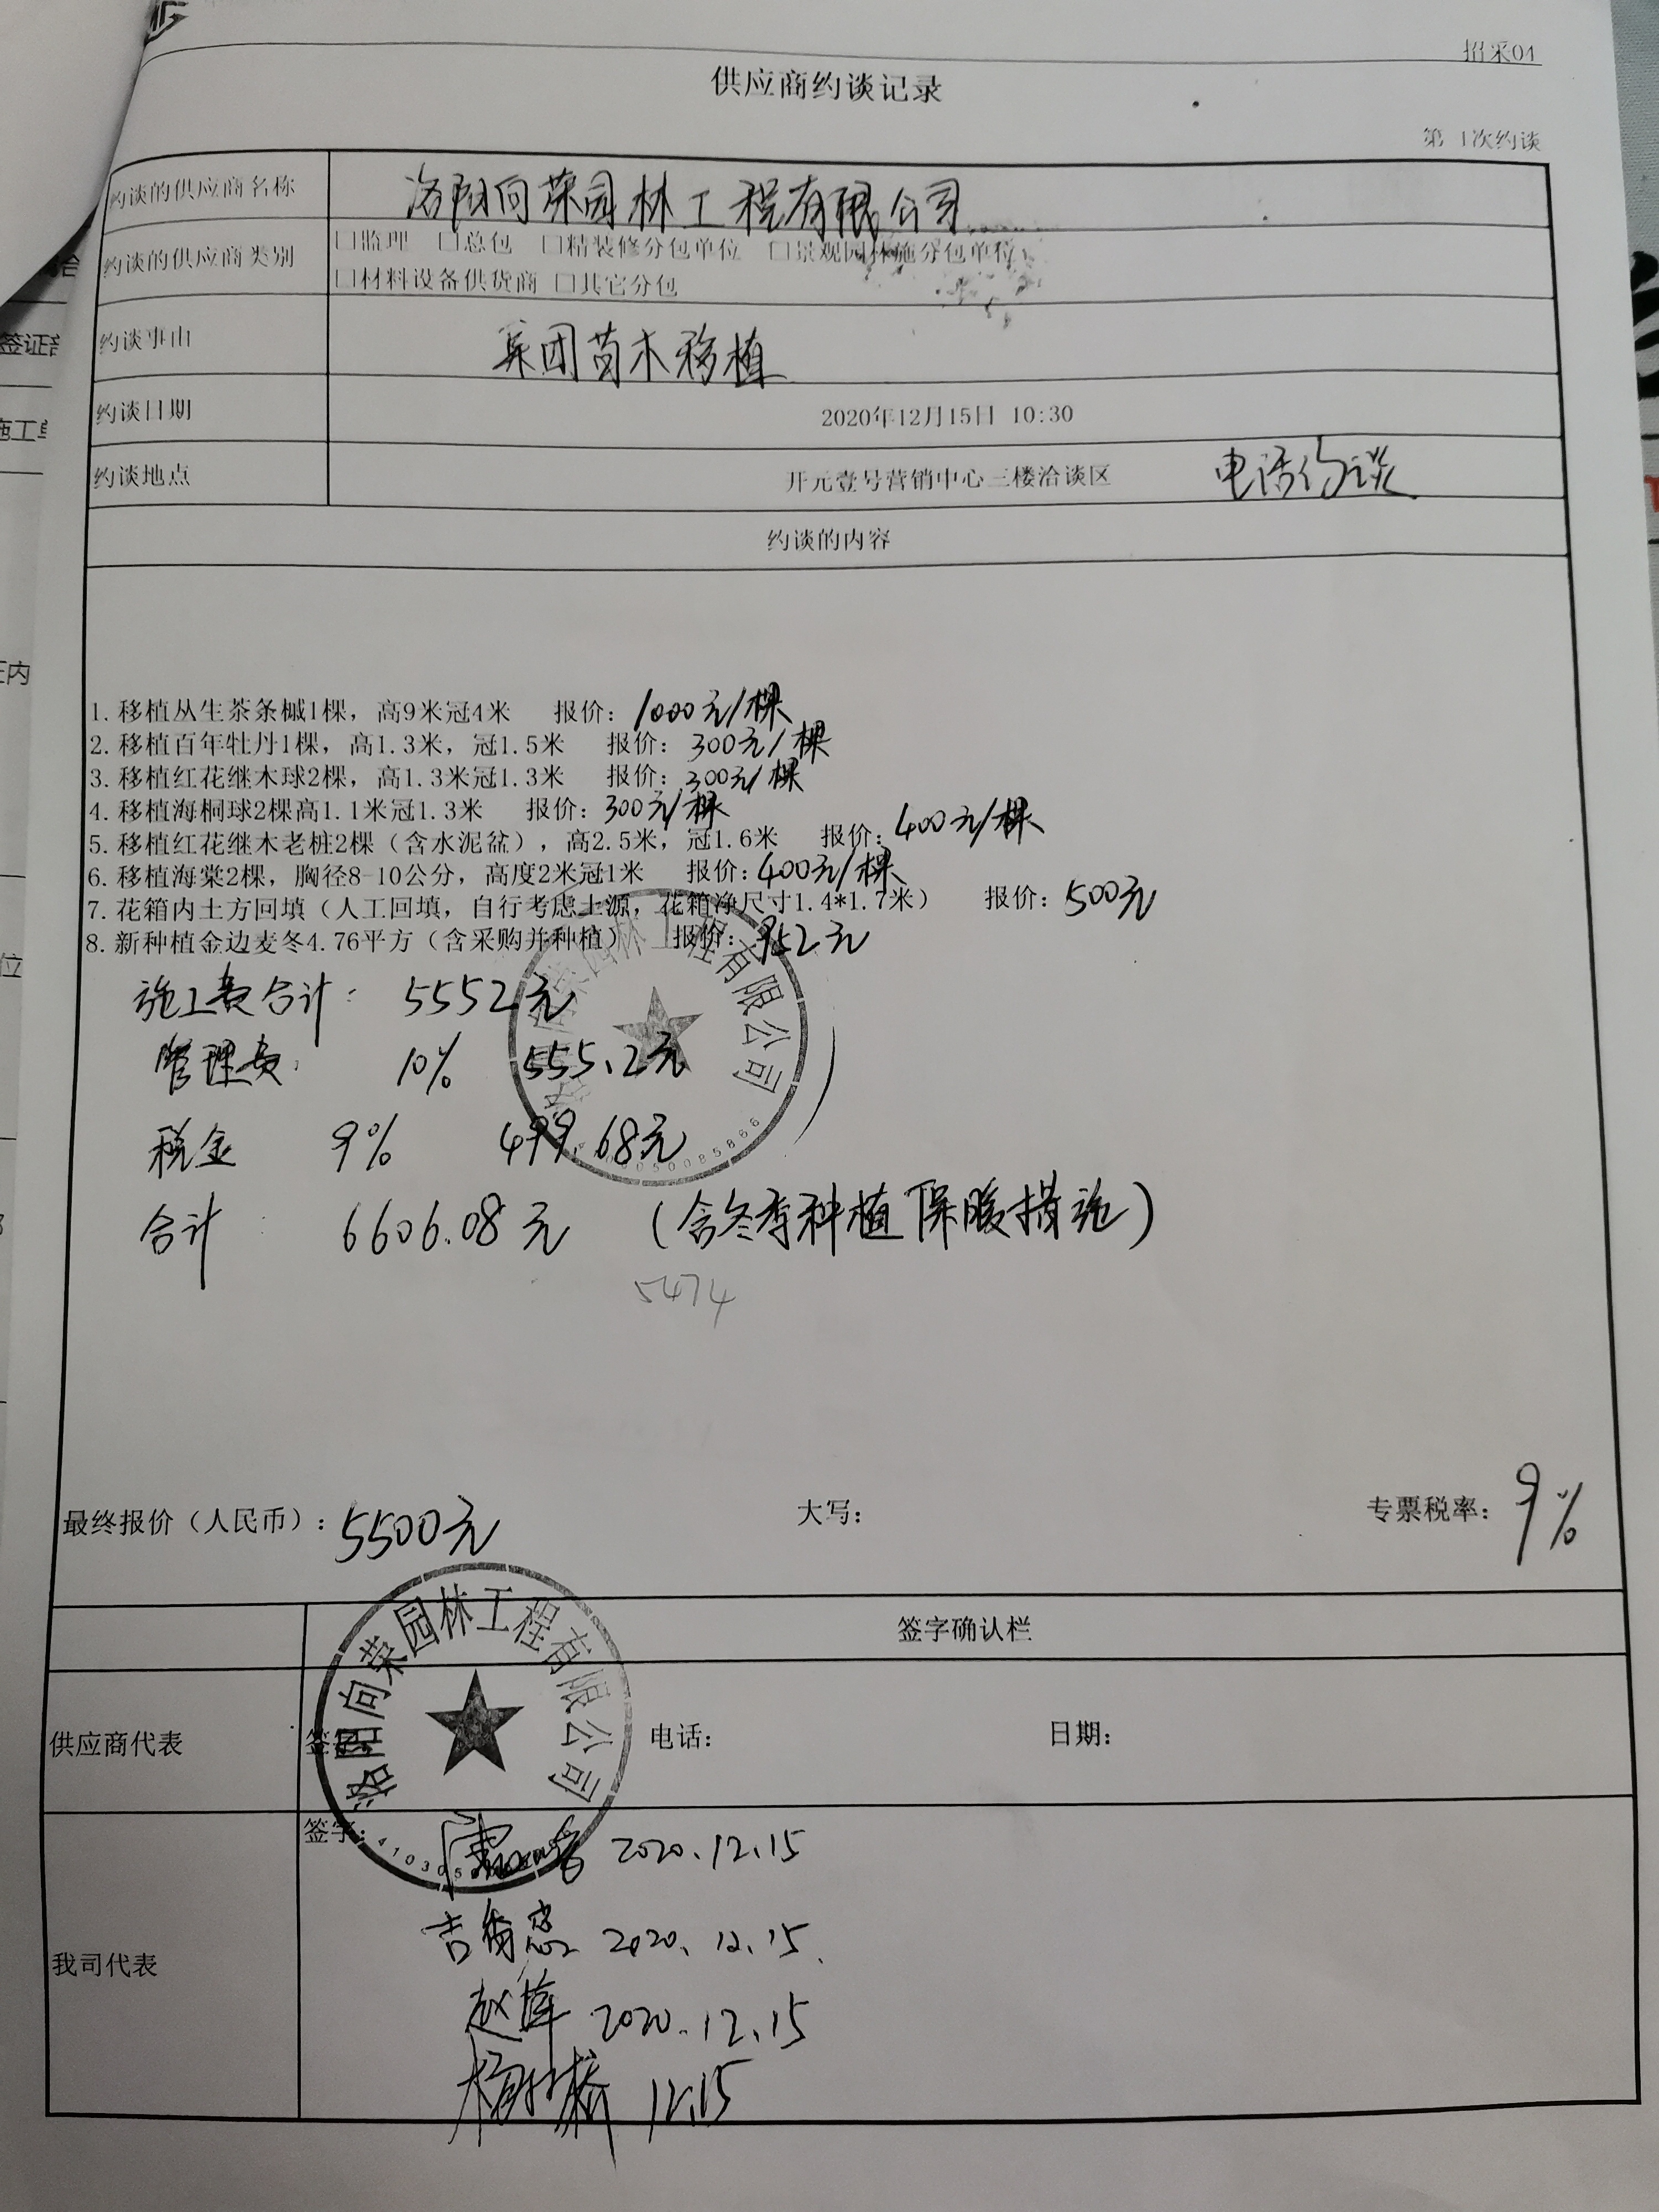 招采04
供应商约谈记录
第 1次约谈
约谈的供应商名称 洛阳向荣园林工程有限公司
约谈的供应商类别 □监理 □总包 □精装修分包单位 □景观园林施分包单位
□材料设备供货商 □其它分包
约谈事由 集团苗木移植
约谈日期 2020年12月15日 10:30
约谈地点 开元壹号营销中心三楼洽谈区 电话约谈
约谈的内容
1.移植丛生茶条槭1棵，高9米冠4米 报价：1000元/棵
2.移植百年牡丹1棵，高1.3米，冠1.5米 报价：300元/棵
3.移植红花继木球2棵，高1.3米冠1.3米 报价：300元/棵
4.移植海桐球2棵高1.1米冠1.3米 报价：300元/棵
5.移植红花继木老桩2棵（含水泥盆），高2.5米，冠1.6米 报价：400元/棵
6.移植海棠2棵，胸径8-10公分，高度2米冠1米 报价：400元/棵
7.花箱内土方回填（人工回填，自行考虑土源，花箱净尺寸1.4*1.7米） 报价：500元
8.新种植金边麦冬4.76平方（含采购并种植） 报价：952元
施工费合计： 5552元
管理费： 10% 555.2元
税金 9% 499.68元
合计： 6606.08元 （含冬季种植保暖措施）
5474
最终报价（人民币）：5500元 大写： 专票税率：9%
签字确认栏
供应商代表 电话： 日期：
洛阳向荣园林工程有限公司
我司代表 签字： 2020.12.15
2020.12.15
2020.12.15
12.15
签证
施工单
位